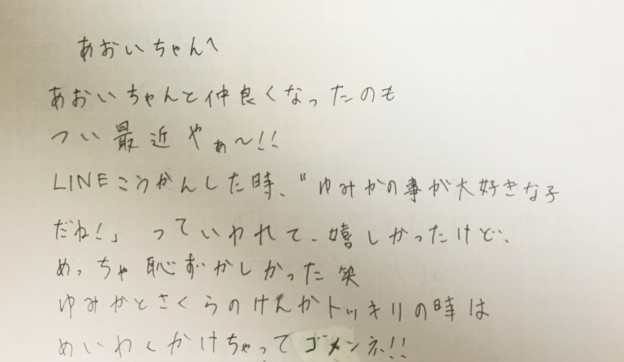 あおいちゃんへ
あおいちゃんと仲良くなったのも
つい最近やぁ〜!!
LINEこうかんした時、"ゆみかの事が大好きな子
だね!」っていわれて、嬉しかったけど、
めっちゃ恥ずかしかった笑
ゆみかとさくらのけんかドッキリの時は
めいわくかけちゃってゴメンネ!!